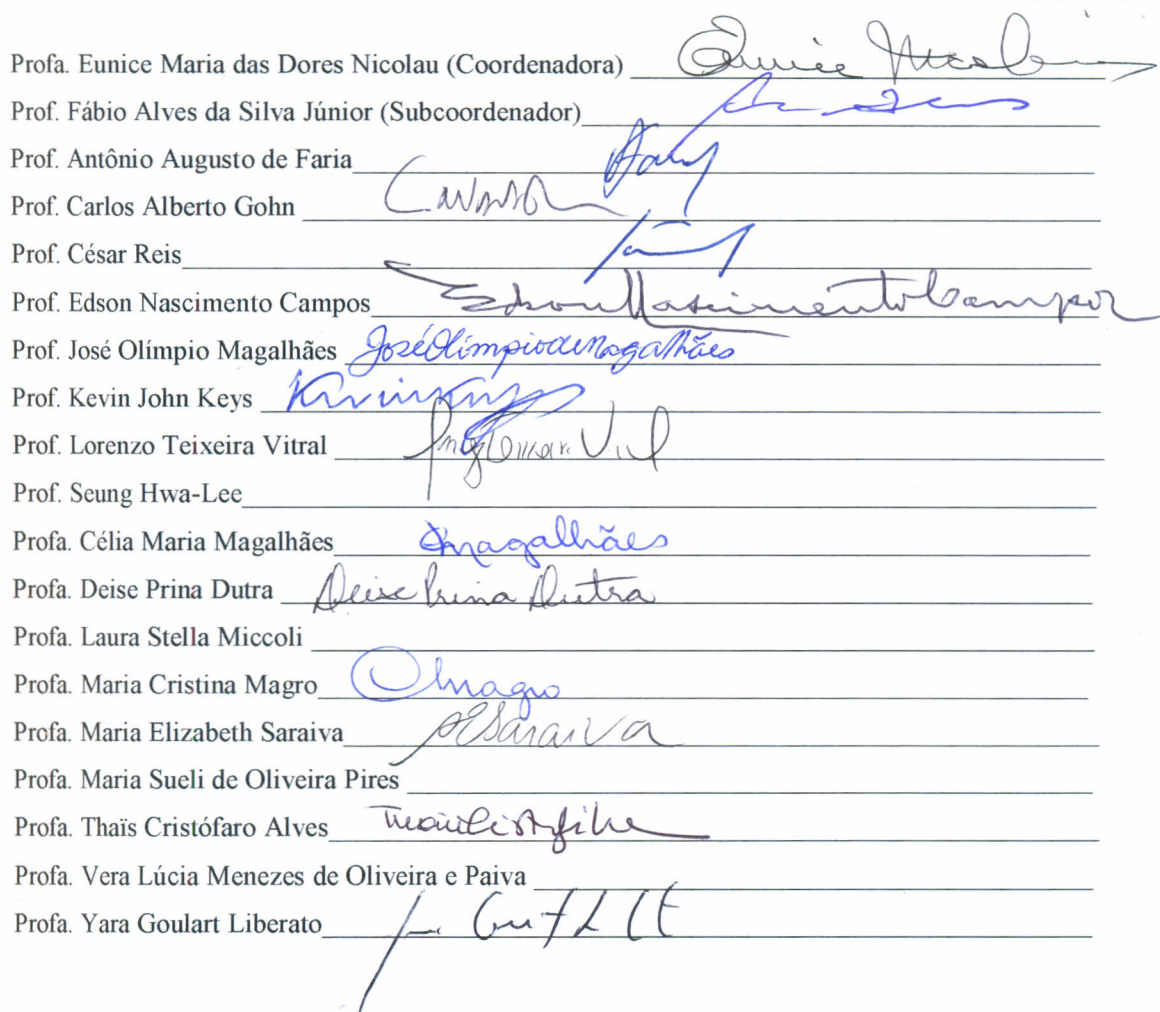 Profa. Eunice Maria das Dores Nicolau (Coordenadora) Eunice Nicolau
Prof. Fábio Alves da Silva Júnior (Subcoordenador)
Prof. Antônio Augusto de Faria
Prof. Carlos Alberto Gohn
Prof. César Reis
Prof. Edson Nascimento Campos Edson Nascimento Campos
Prof. José Olímpio Magalhães José Olímpio de Magalhães
Prof. Kevin John Keys
Prof. Lorenzo Teixeira Vitral
Prof. Seung Hwa-Lee
Profa. Célia Maria Magalhães Cmagalhães
Profa. Deise Prina Dutra Deise Prina Dutra
Profa. Laura Stella Miccoli
Profa. Maria Cristina Magro CMagro
Profa. Maria Elizabeth Saraiva Saraiva
Profa. Maria Sueli de Oliveira Pires
Profa. Thaïs Cristófaro Alves
Profa. Vera Lúcia Menezes de Oliveira e Paiva
Profa. Yara Goulart Liberato